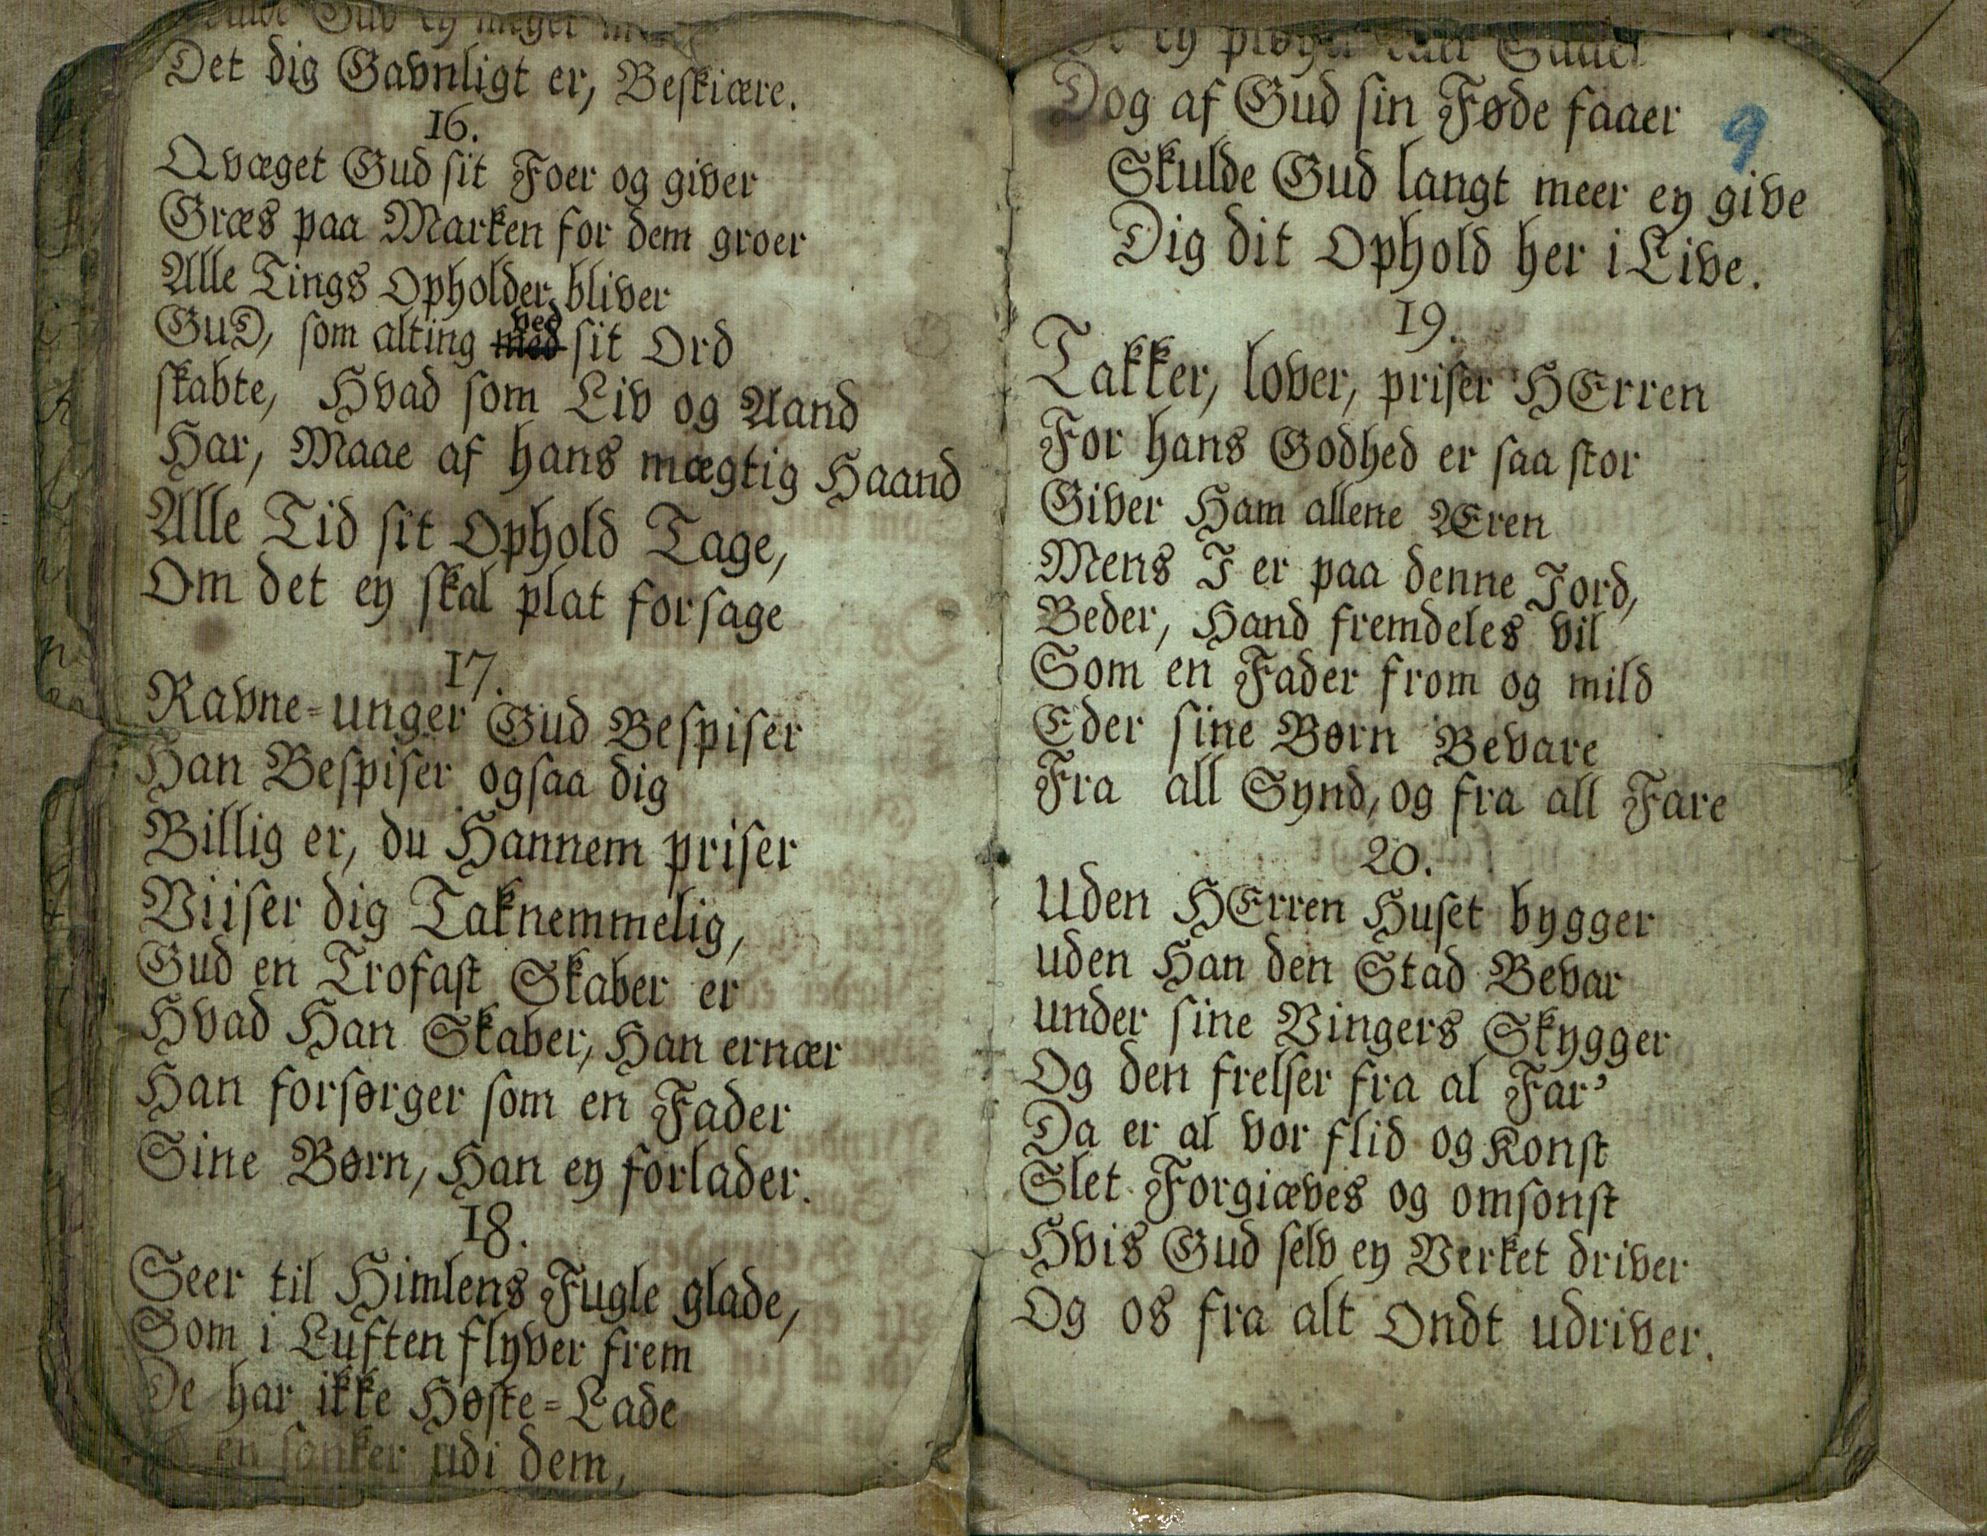 Gud ey meget
Det dig Gavnligt er, Beskiære.
16.
Qvæget Gud sit Foer og giver
Græs paa Marken for dem groer
Alle Tings Opholder bliver
GuD, som alting med ved sit Ord
skabte, Hvad som Liv og Aand
Har, Maae af hans mægtig Haand
Alle Tid sit Ophold Tage,
Om det ey skal plat forsage
17.
Ravne=unger Gud Bespiser
Han Bespiser ogsaa dig
Billig er, du Hannem priser
Viiser dig Taknemmelig,
Gud en Trofast Skaber er
Hvad Han Skaber, Han ernær
Han forsørger som en Fader
Sine Børn, Han ey forlader.
18.
Seer til Himlens Fugle glade,
Som i Luften flyver frem
De har ikke Høste=Lade
en sanker udi dem,
9
ey pløyer
Dog af Gud sin Føde faaer
Skulde Gud langt meer ey give
Dig dit Ophold her i Live.
19.
Takker, lover, priser HErren
For hans Godhed er saa stor
Giver Ham allene Æren
Mens I er paa denne Jord,
Beder, Hand fremdeles vil
Som en Fader from og mild
Eder sine Børn Bevare
Fra all Synd, og fra all Fare
20.
Uden HErren Huset bygger
uden Han den Stad Bevar
under sine Vingers Skygger
Og den frelser fra al Far'
Da er al vor flid og Konst
Slet Forgiæves og omsonst
Hvis Gud selv ey Verket driver
Og os fra alt Ondt udriver.